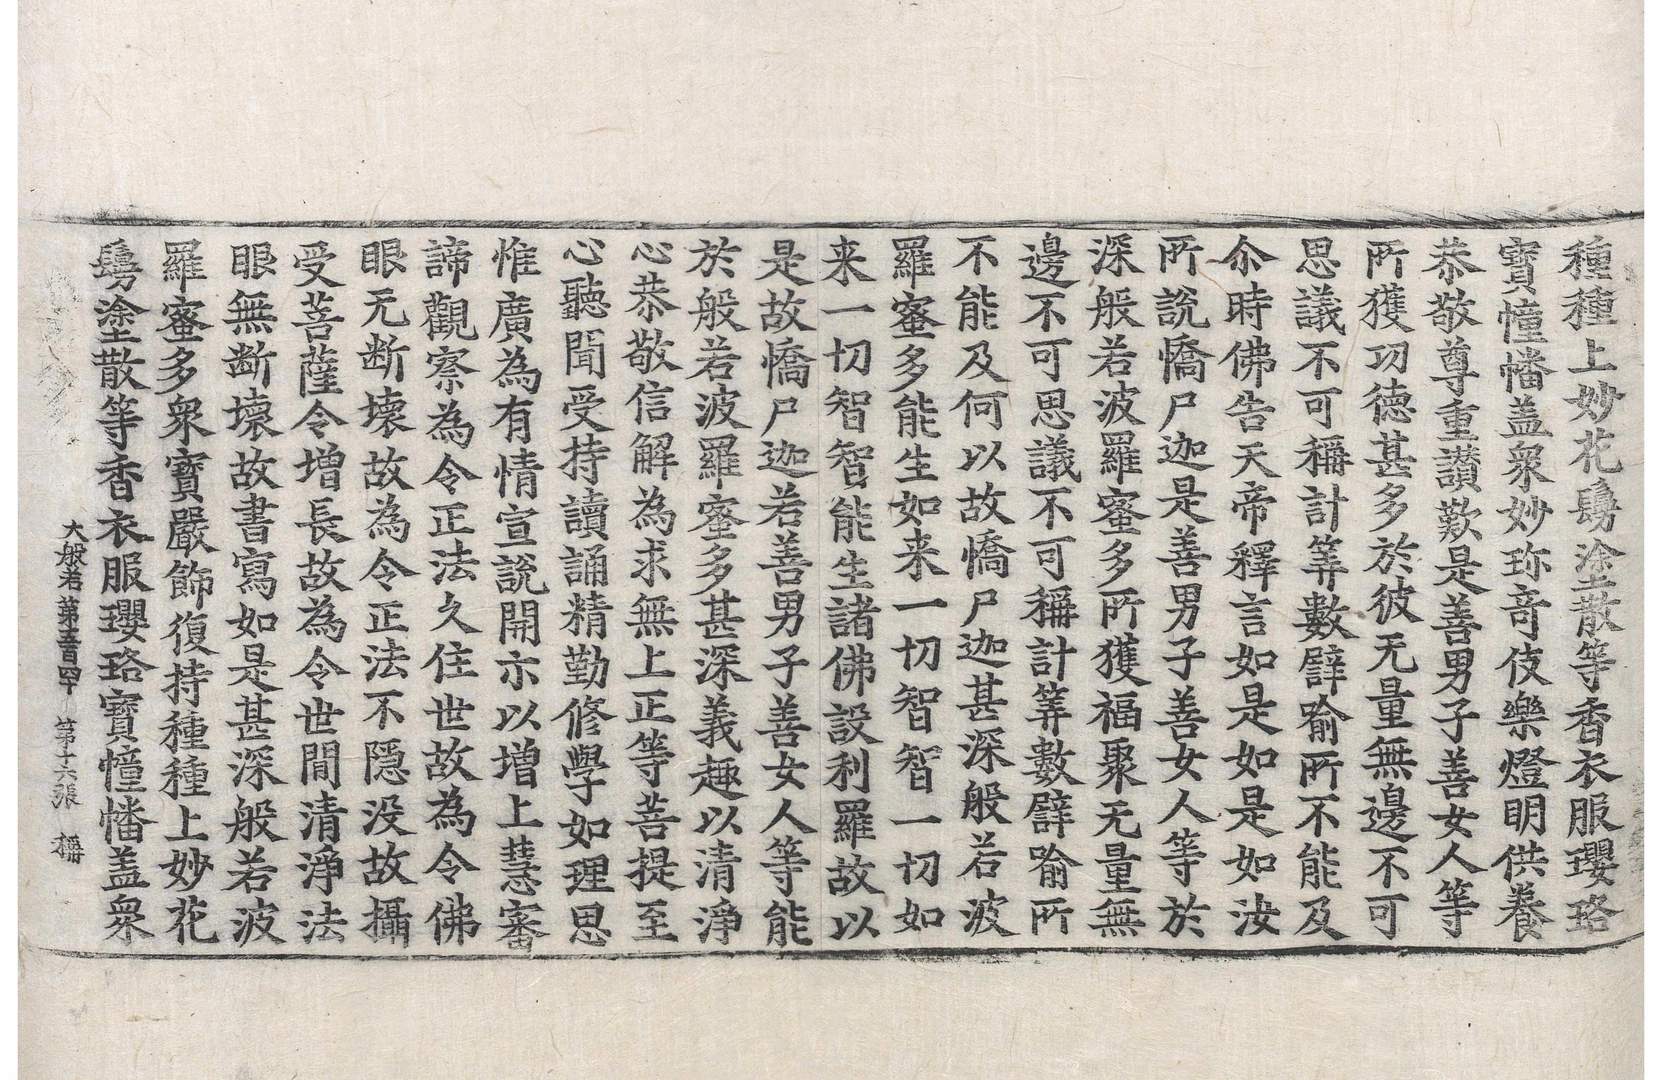 種種上妙花鬘塗散等香衣服瓔珞
寶憧幡盖衆妙珎竒伎樂燈明供養
恭敬尊重讃歎是善男子善女人等
所獲㓛德甚多於彼无量無邊不可
思議不可稱計筭數譬喻所不能及
尒時佛告天帝釋言如是如是如汝
所說憍尸迦是善男子善女人等於
深般若波羅蜜多所獲福聚无量無
邊不可思議不可稱計筭數譬喻所
不能及何以故憍尸迦甚深般若波
羅蜜多能生如来一切智智一切如
来一切智智能生諸佛設利羅故以
是故憍尸迦若善男子善女人等能
於般若波羅蜜多甚深義趣以清淨
心恭敬信解為求無上正等菩提至
心聽聞受持讀誦精勤修學如理思
惟廣為有情宣說開示以增上慧審
諦觀察為令正法久住世故為令佛
眼无断壞故為令正法不隱没故攝
受菩薩令增長故為令世閒清淨法
眼無断壞故書寫如是甚深般若波
羅蜜多衆寶嚴飾復持種種上妙花
鬘塗散等香衣服瓔珞寶憧幡盖衆
大般若第五百四十　第十六張　稱